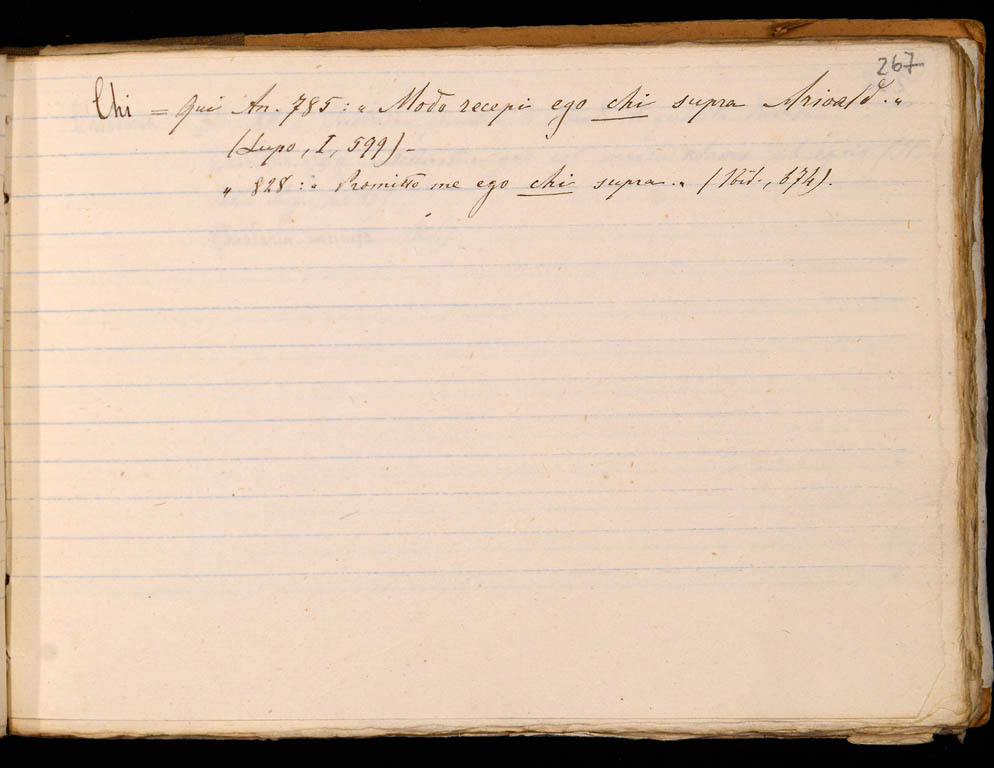 267
Chi = Qui An. 785: « Modo recepi ego chi supra Arioald. »
(Lupo, I, 599).-
„ 828: « Promitto me ego chi supra. » (Ibid., 674).